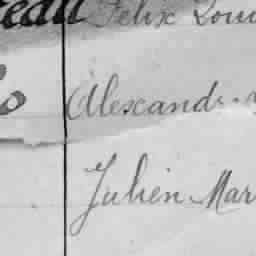 teau Félix Loui
Alexand
Julien Mar